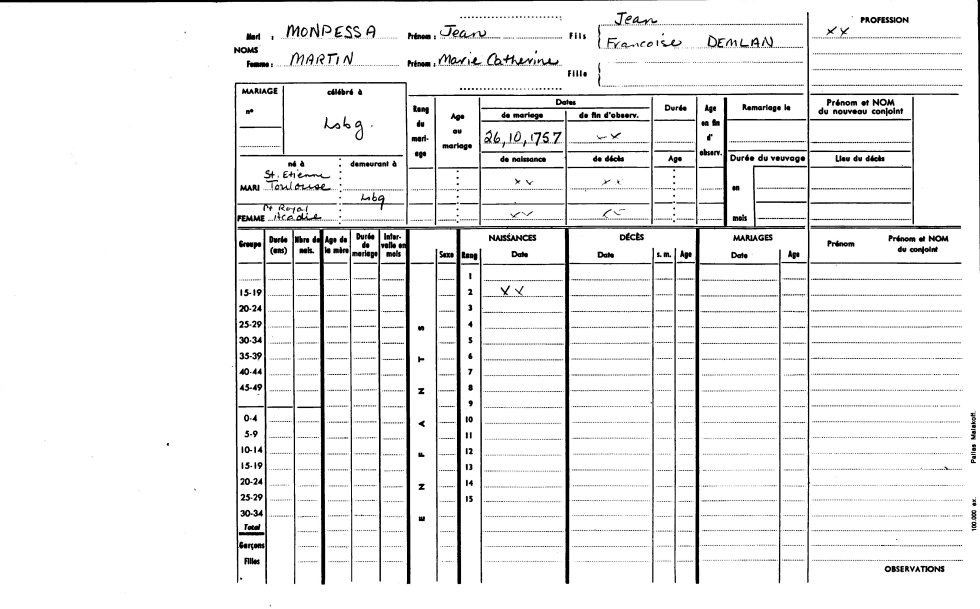 Mari : MONPESSA Prénom : Jean Fils Jean
Francoise DEMLAN
PROFESSION
XX
NOMS
Femme : MARTIN Prénom : Marie Catherine Fille
MARIAGE célébré à
n°
Lsbg.
Rang du mari- age
Age au mariage
Dates
de mariage de fin d'observ.
26,10,1757 XX
de naissance de décès
Durée
Age
Age en fin d' observ.
Remariage le
Prénom et NOM
du nouveau conjoint
Durée du veuvage
Lieu du décès
en
mois
né à demeurant à
St. Etienne
MARI Toulouse XX XX
Lsbg
Pt Royal
FEMME Acadie XX XX
Groupe
Durée (ans)
Nbre de nais.
Age de la mère
Durée de mariage
Inter- valle en mois
ENFANTS
Sexe
Rang
NAISSANCES
Date
DÉCÈS
Date
s. m.
Age
MARIAGES
Date
Age
Prénom
Prénom et NOM
du conjoint
1
15-19 2 XX
20-24 3
25-29 4
30-34 5
35-39 6
40-44 7
45-49 8
9
0-4 10
5-9 11
10-14 12
15-19 13
20-24 14
25-29 15
30-34
Total
Garçons
Filles
OBSERVATIONS
100.000 ex. Pallas Malakoff.